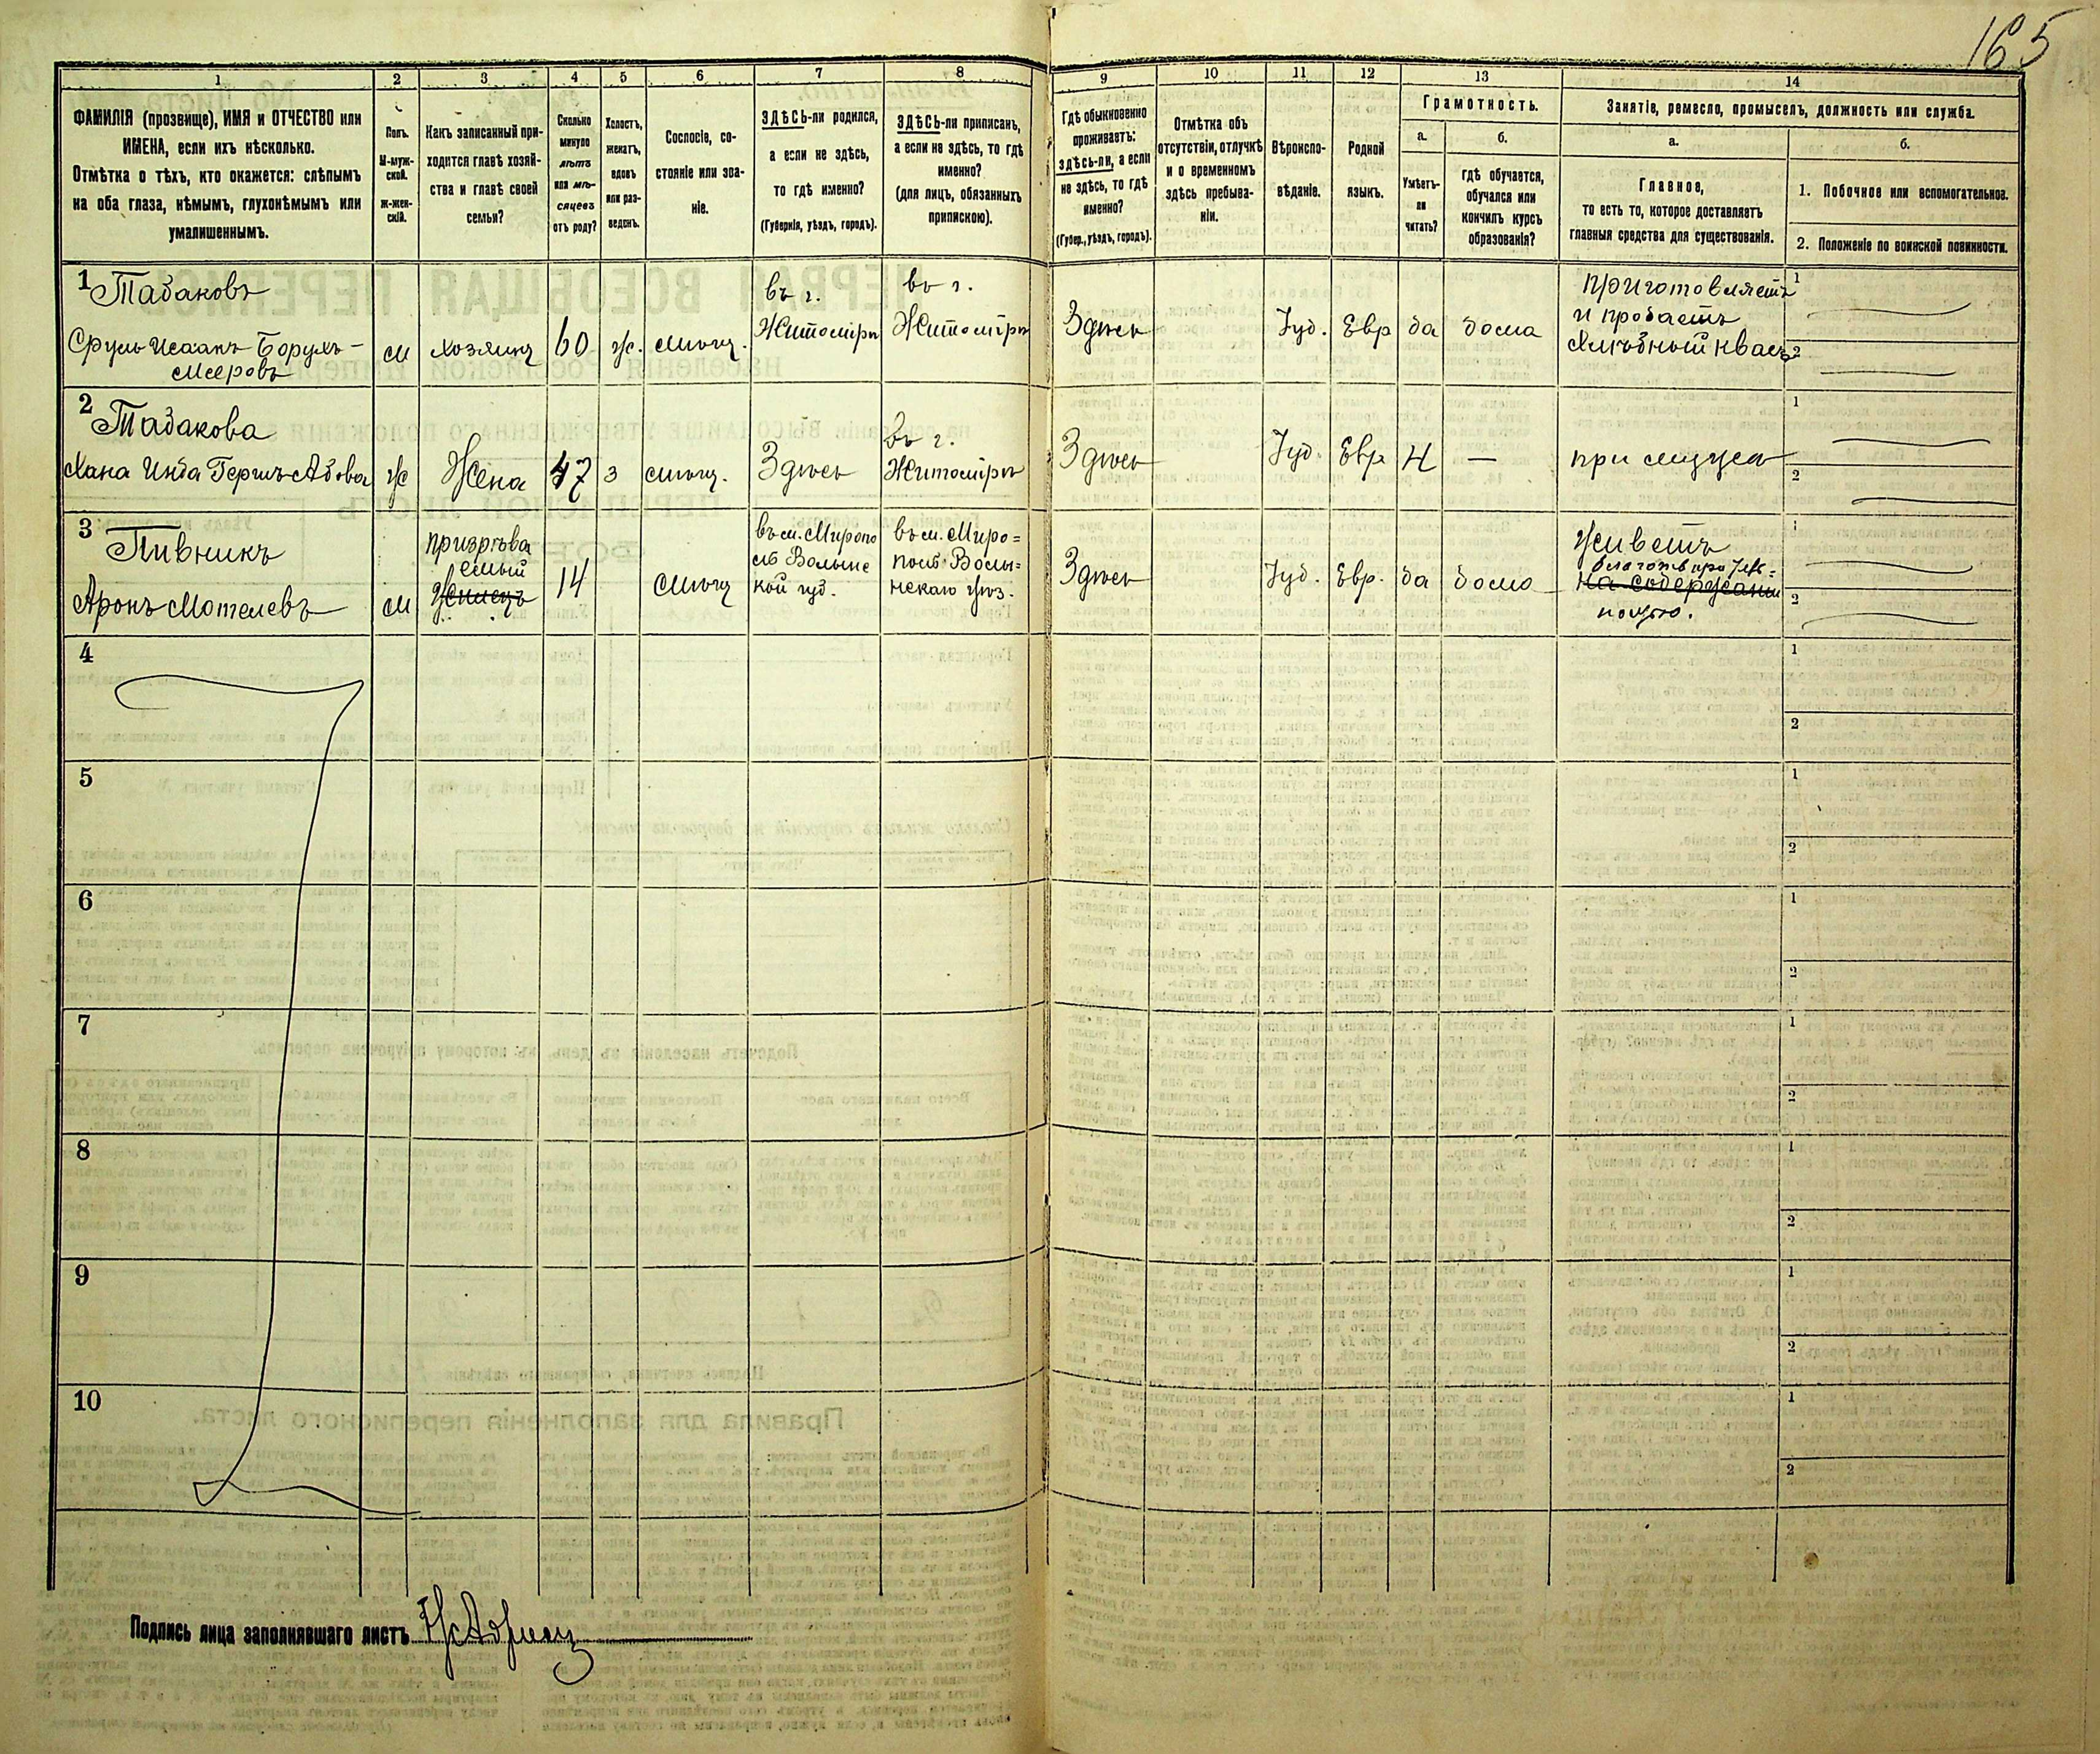 165
1
2
3
4
5
6
7
8
9
10
11
12
13
14
ФАМИЛІЯ (прозвище), ИМЯ и ОТЧЕСТВО или
ИМЕНА, если ихъ нѣсколько.
Отмѣтка о тѣхъ, кто окажется: слѣпымъ
на оба глаза, нѣмымъ, глухонѣмымъ или
умалишеннымъ.
Полъ.
М-муж-
ской.
Ж-жен-
скій.
Какъ записанный при-
ходится главѣ хозяй-
ства и главѣ своей
семьи?
Сколько
минуло
лѣтъ
или мѣ-
сяцевъ
отъ роду?
Холостъ,
женатъ,
вдовъ
или раз-
веденъ.
Сословіе, со-
стояніе или зва-
ніе.
ЗДѢСЬ-ли родился,
а если не здѣсь,
то гдѣ именно?
(Губернія, уѣздъ, городъ).
ЗДѢСЬ-ли приписанъ,
а если не здѣсь, то гдѣ
именно?
(для лицъ, обязанныхъ
припискою).
Гдѣ обыкновенно
проживаетъ:
здѣсь-ли, а если
не здѣсь, то гдѣ
именно?
(Губер., уѣздъ, городъ).
Отмѣтка объ
отсутствіи, отлучкѣ
и о временномъ
здѣсь пребыва-
ніи.
Вѣроиспо-
вѣданіе.
Родной
языкъ.
Грамотность.
а.
Умѣетъ-
ли
читать?
б.
гдѣ обучается,
обучался или
кончилъ курсъ
образованія?
Занятіе, ремесло, промыселъ, должность или служба.
а.
Главное,
то есть то, которое доставляетъ
главныя средства для существованія.
б.
1. Побочное или вспомогательное.
2. Положеніе по воинской повинности.
1
Табаковъ
Сруль Исаакъ Борухъ-
Мееровъ
м
хозяинъ
60
ж.
мѣщ.
въ г.
Житомірѣ
въ г.
Житомірѣ
Здѣсь
Іуд.
Евр
да
дома
приготовляетъ
и продаетъ
хлѣбный квасъ
1
2
2
Табакова
Хана Инда Гершъ-Абова
ж
Жена
47
з
мѣщ.
Здѣсь
въ г.
Житомірѣ
Здѣсь
Іуд.
Евр.
Н
—
при мужѣ
1
2
3
Пивникъ
Аронъ Мотелевъ
м
призрѣва
емый
14
мѣщ
въ м. Миропо
лѣ Волынс
кой губ.
въ м. Миро=
полѣ Волы=
нскаго уѣз.
Здѣсь
Іуд.
Евр.
да
дома
Живетъ
на содержаніи
1
2
4
1
2
5
1
2
6
1
2
7
1
2
8
1
2
9
1
2
10
1
2
Подпись лица заполнявшаго листъ